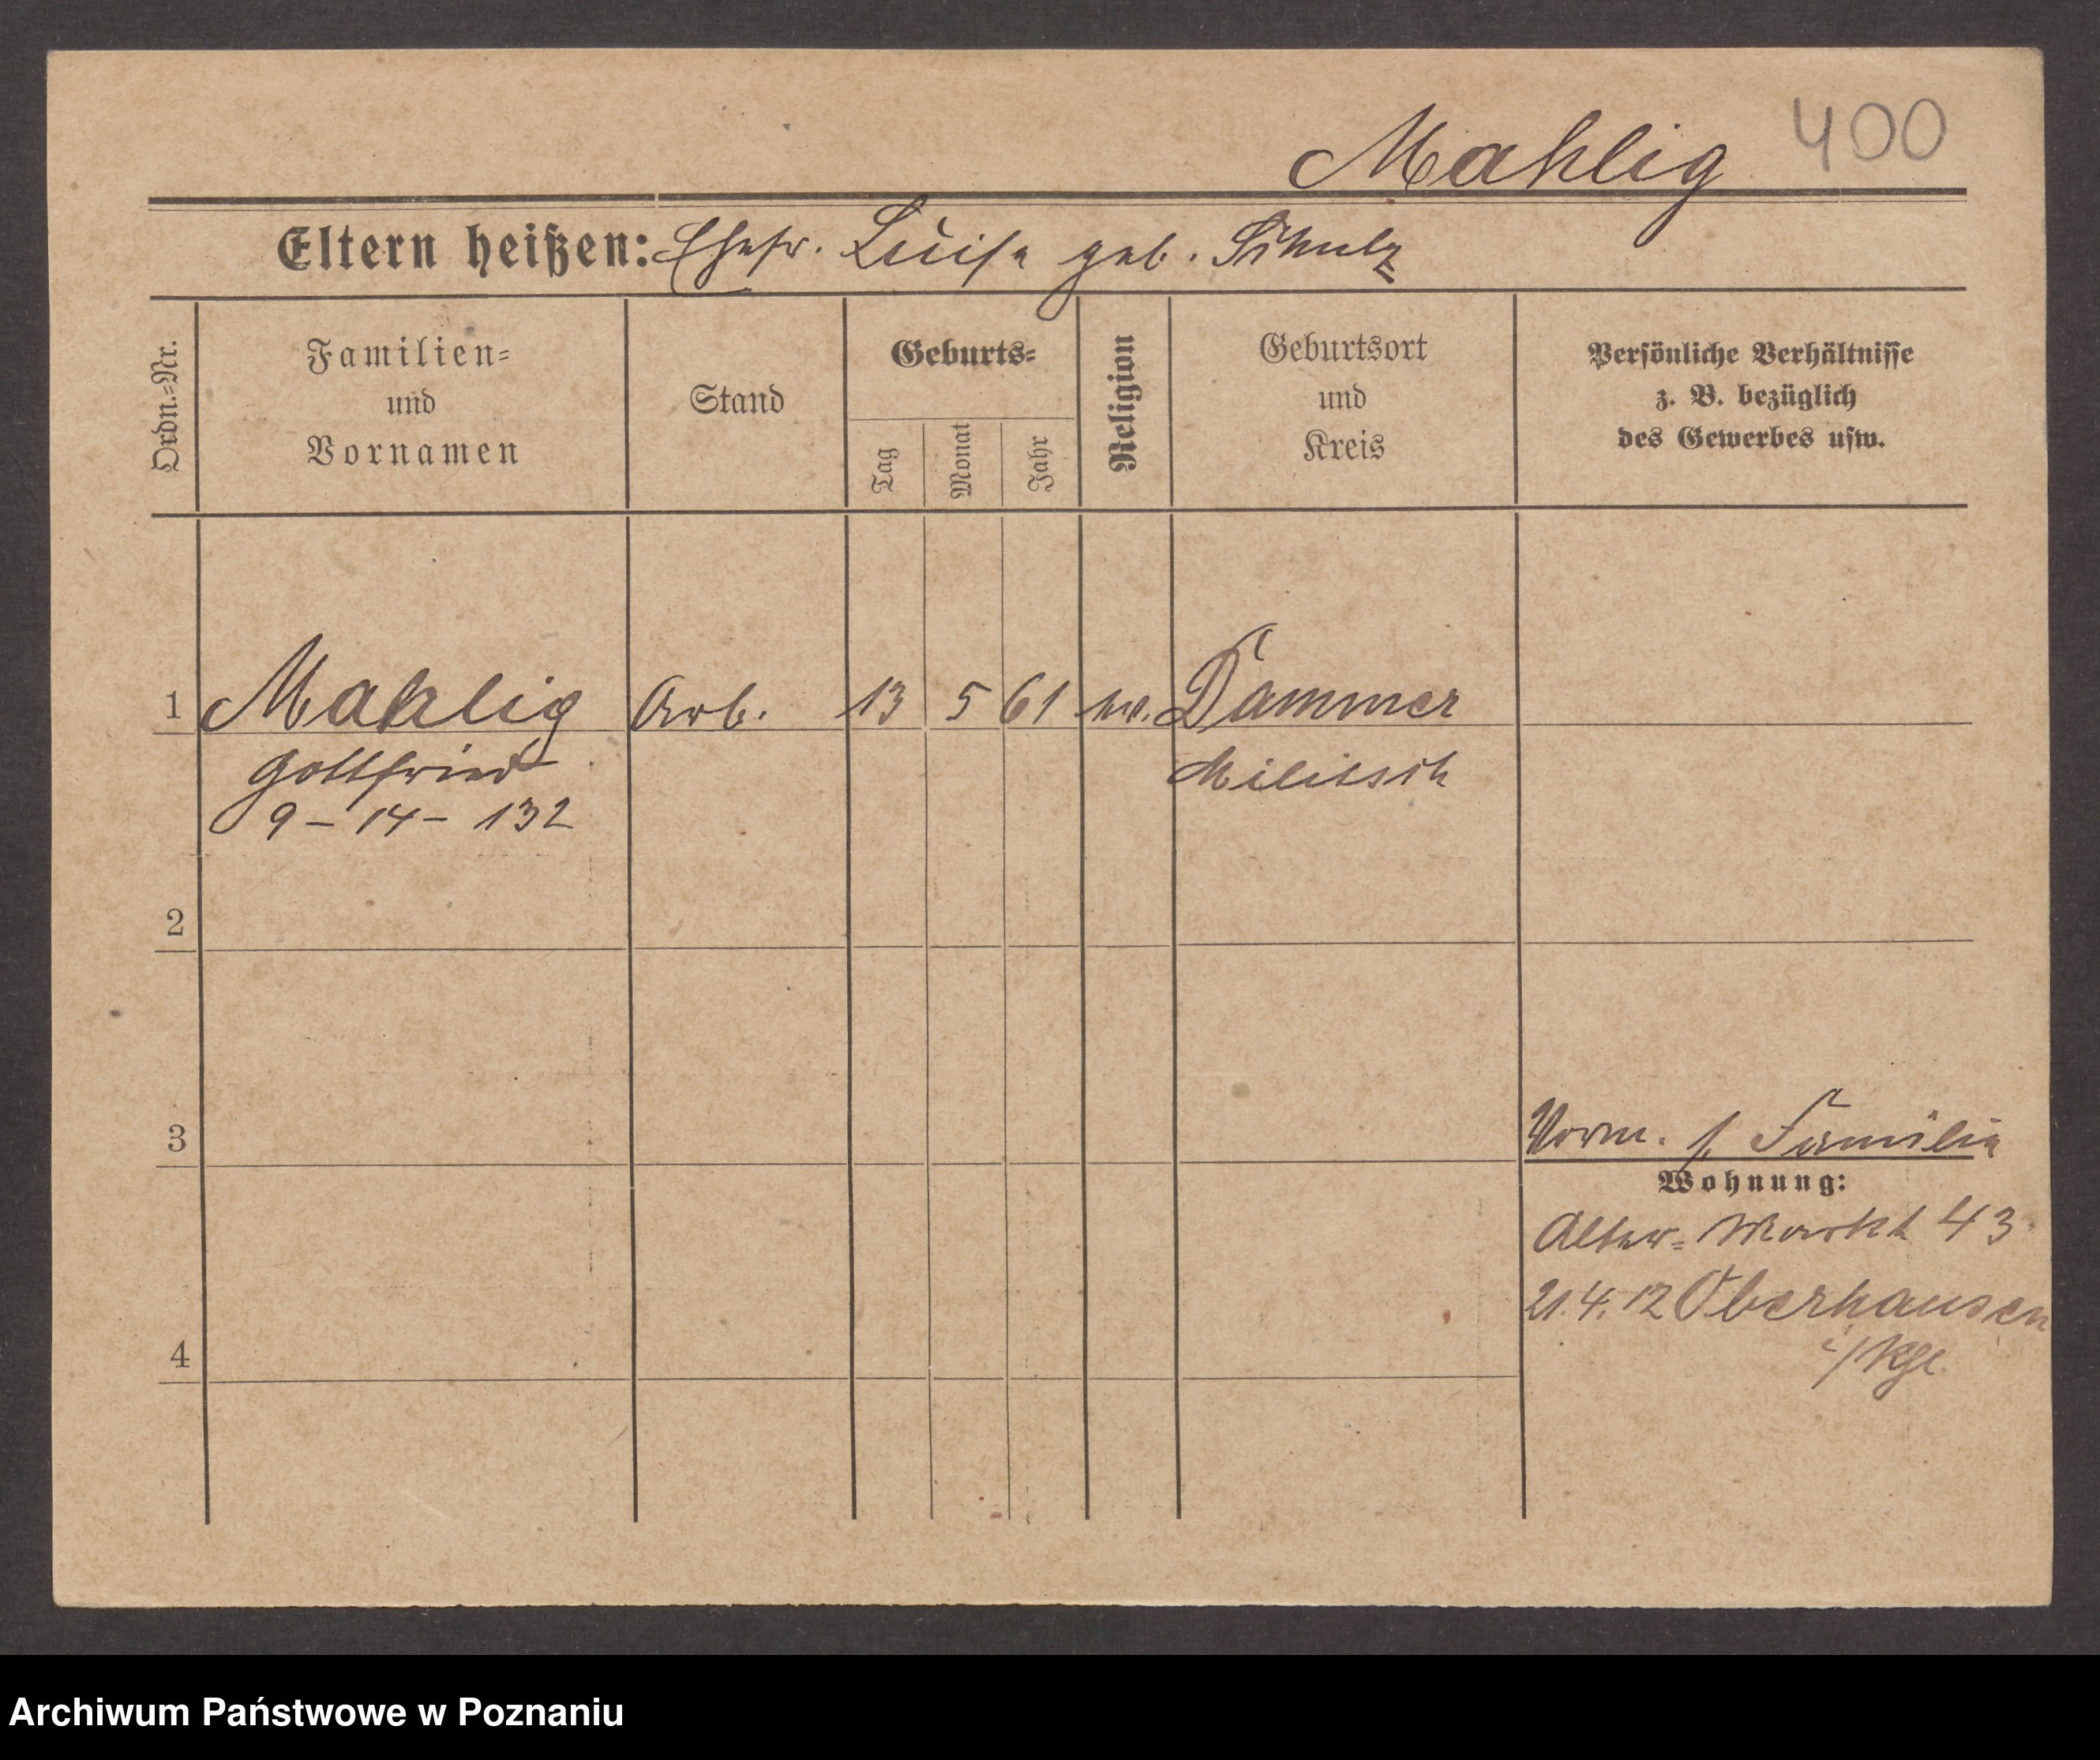 Mahlig 400
Eltern heißen: Ehefr. Luise geb. Schulz
Ordn.=Nr.
Familien=
und
Vornamen
Stand
Geburts=
Tag
Monat
Jahr
Religion
Geburtsort
und
Kreis
Persönliche Verhältnisse
z. B. bezüglich
des Gewerbes usw.
1 Mahlig Arb. 13 5 61 ev. Dammer
Gottfried Militsch
9 – 14 – 132
2
3 Verm. s. Familie
Wohnung:
Alter= Markt 43
21.4.12 Oberhausen
4
Archiwum Państwowe w Poznaniu